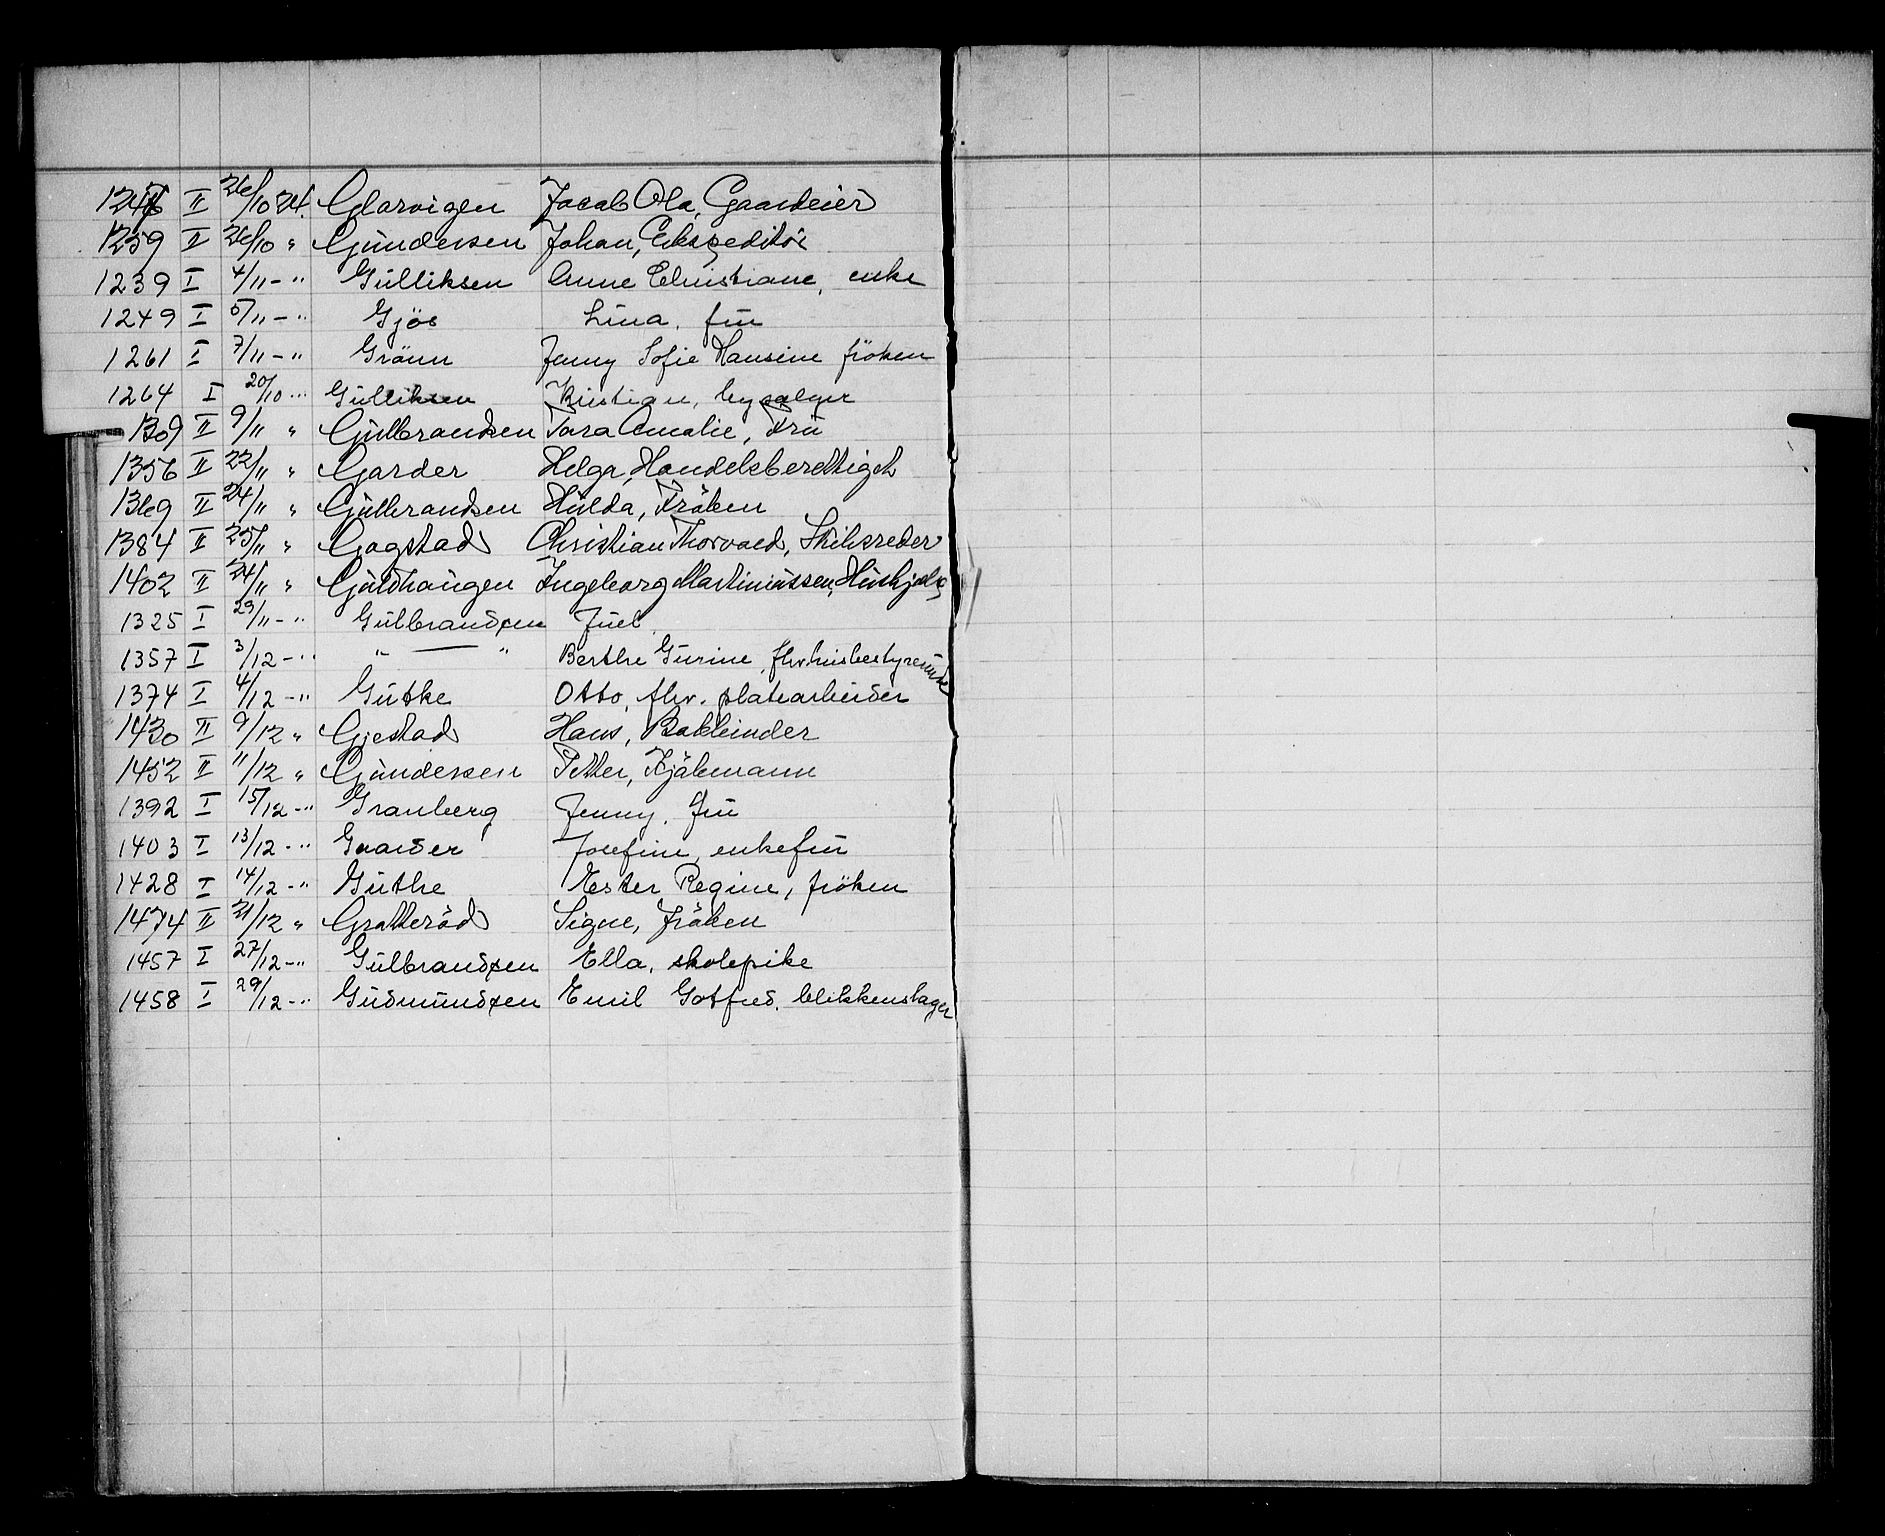 1246 II 26/10 24. Glarvigen Jacob Ola, Gaardeier
1259 II 26/10 " Gundersen Johan, Ekspeditör
1239 I 4/11 - " Gulliksen Anne Christiane, enke
1249 I 5/11 - " Gjös Lina, fru
1261 I 7/11 - " Grönn Jenny Sofie Hansine fröken
1264 I 20/10 - " Gulliksen Kristian, bysælger
1309 II 9/11 " Gulbrandsen Tora Amalie, Fru
1356 II 22/11 " Garder Helga, Handelsberettiget
1369 II 24/11 " Gulbrandsen Hulda, Fröken
1384 II 25/11 " Gogstad Christian Thorvald, Skibsreder
1402 II 24/11 " Guldhaugen Ingeborg Martiniussen, Hushjelp
1325 I 29/11 - " Gulbrandsen Juel
1357 I 3/12 - " " — " Berthe Gurine, fhv. husbestyrerinde
1374 I 4/12 - " Gutke Otto, fhv. platearbeider
1430 II 9/12 " Gjestad Hans, Bokbinder
1452 II 11/12 " Gundersen Petter, Kjömann
1392 I 15/12 - " Granberg Jenny, fru
1403 I 13/12 - " Gaarder Josefine, enkefru
1428 I 14/12 - " Guthe Ester Regine, fröken
1474 II 21/12 " Gratteröd Signe, Fröken
1457 I 27/12 - " Gulbrandsen Ella, skolepike
1458 I 29/12 - " Gudmundsen Emil Gotfred, blikkenslager